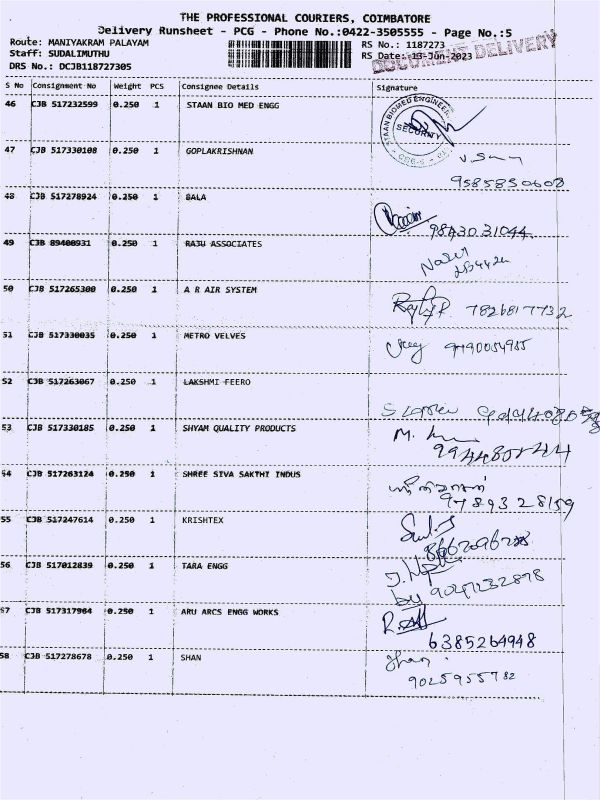 THE PROFESSIONAL COURIERS, COIMBATORE
Delivery Runsheet - PCG - Phone No.:0422-3505555 - Page No.:5
Route: MANIYAKRAM PALAYAM RS No.: 1187273
Staff: SUDALIMUTHU RS Date: 13-Jun-2023
DOCUMENT DELIVERY
DRS No.: DCJB118727305
S No Consignment No Weight PCS Consignee Details Signature
46 CJB 517232599 0.250 1 STAAN BIO MED ENGG
STAAN BIOMED ENGINEER
SECURITY
47 CJB 517330108 0.250 1 GOPLAKRISHNAN
9585850608
48 CJB 517278924 0.250 1 BALA
9843031044
49 CJB 89400931 0.250 1 RAJU ASSOCIATES
50 CJB 517265300 0.250 1 A R AIR SYSTEM
7826817732
51 CJB 517330035 0.250 1 METRO VELVES
52 CJB 517263067 0.250 1 LAKSHMI FEERO
53 CJB 517330185 0.250 1 SHYAM QUALITY PRODUCTS
54 CJB 517263124 0.250 1 SHREE SIVA SAKTHI INDUS
9789328159
55 CJB 517247614 0.250 1 KRISHTEX
56 CJB 517012839 0.250 1 TARA ENGG
57 CJB 517317964 0.250 1 ARU ARCS ENGG WORKS
6385264948
58 CJB 517278678 0.250 1 SHAN
9025955782